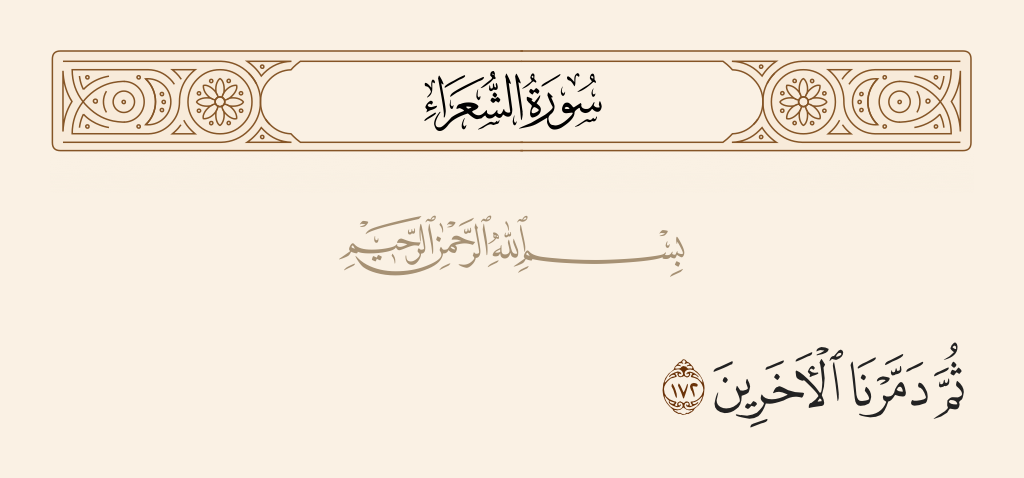 سُورَةُ الشُّعَرَاءِ
بِسْمِ ٱللَّهِ ٱلرَّحْمَٰنِ ٱلرَّحِيمِ
ثُمَّ دَمَّرْنَا ٱلْأَخَرِينَ ١٧٢